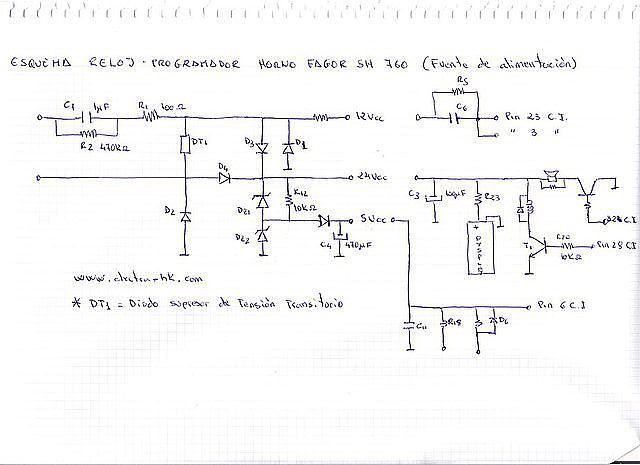 ESQUEMA RELOJ - PROGRAMADOR HORNO FAGOR SH 760 (Fuente de alimentación)
C1 1µF R1 100Ω
R2 470KΩ
DT1
D3
D1
12Vcc
R5
C6
Pin 23 C.I.
" 3 "
D4
24Vcc
D2
DZ1
DZ2
R12
10KΩ
5Vcc
C4 470µF
C3 100µF
R23
DISPLAY
T1
R20
10KΩ
Pin 28 C.I
C11
R18
D6
Pin 6 C.I
* DT1 = Diodo supresor de Tensión Transitorio